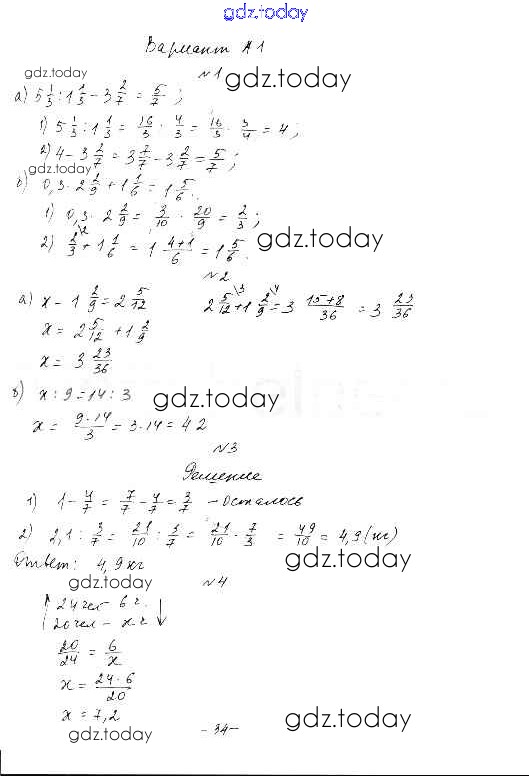 gdz.today
Вариант №1
gdz.today
№1 gdz.today
а) 5 1/3 : 1 1/3 − 3 2/7 = 5/7 ;
1) 5 1/3 : 1 1/3 = 16/3 : 4/3 = 16/3 · 3/4 = 4 ;
2) 4 − 3 2/7 = 3 7/7 − 3 2/7 = 5/7 ;
gdz.today
б) 0,3 · 2 2/9 + 1 1/6 = 1 5/6 .
1) 0,3 · 2 2/9 = 3/10 · 20/9 = 2/3 ;
2) 2/3 \2 + 1 1/6 = 1 4+1/6 = 1 5/6 . gdz.today
№2
а) x − 1 2/9 = 2 5/12   2 5/12 \3 + 1 2/9 \4 = 3 15+8/36 = 3 23/36
x = 2 5/12 + 1 2/9
x = 3 23/36
б) x : 9 = 14 : 3 gdz.today
x = 9·14/3 = 3·14 = 42
№3
Решение
1) 1 − 4/7 = 7/7 − 4/7 = 3/7 – осталось
gdz.today gdz.today
2) 2,1 : 3/7 = 21/10 : 3/7 = 21/10 · 7/3 = 49/10 = 4,9 (кг)
Ответ: 4,9 кг
gdz.today №4
↑ 24 чел – 6 ч. ↓
20 чел – x ч
20/24 = 6/x
x = 24·6/20
x = 7,2
gdz.today - 34 - gdz.today